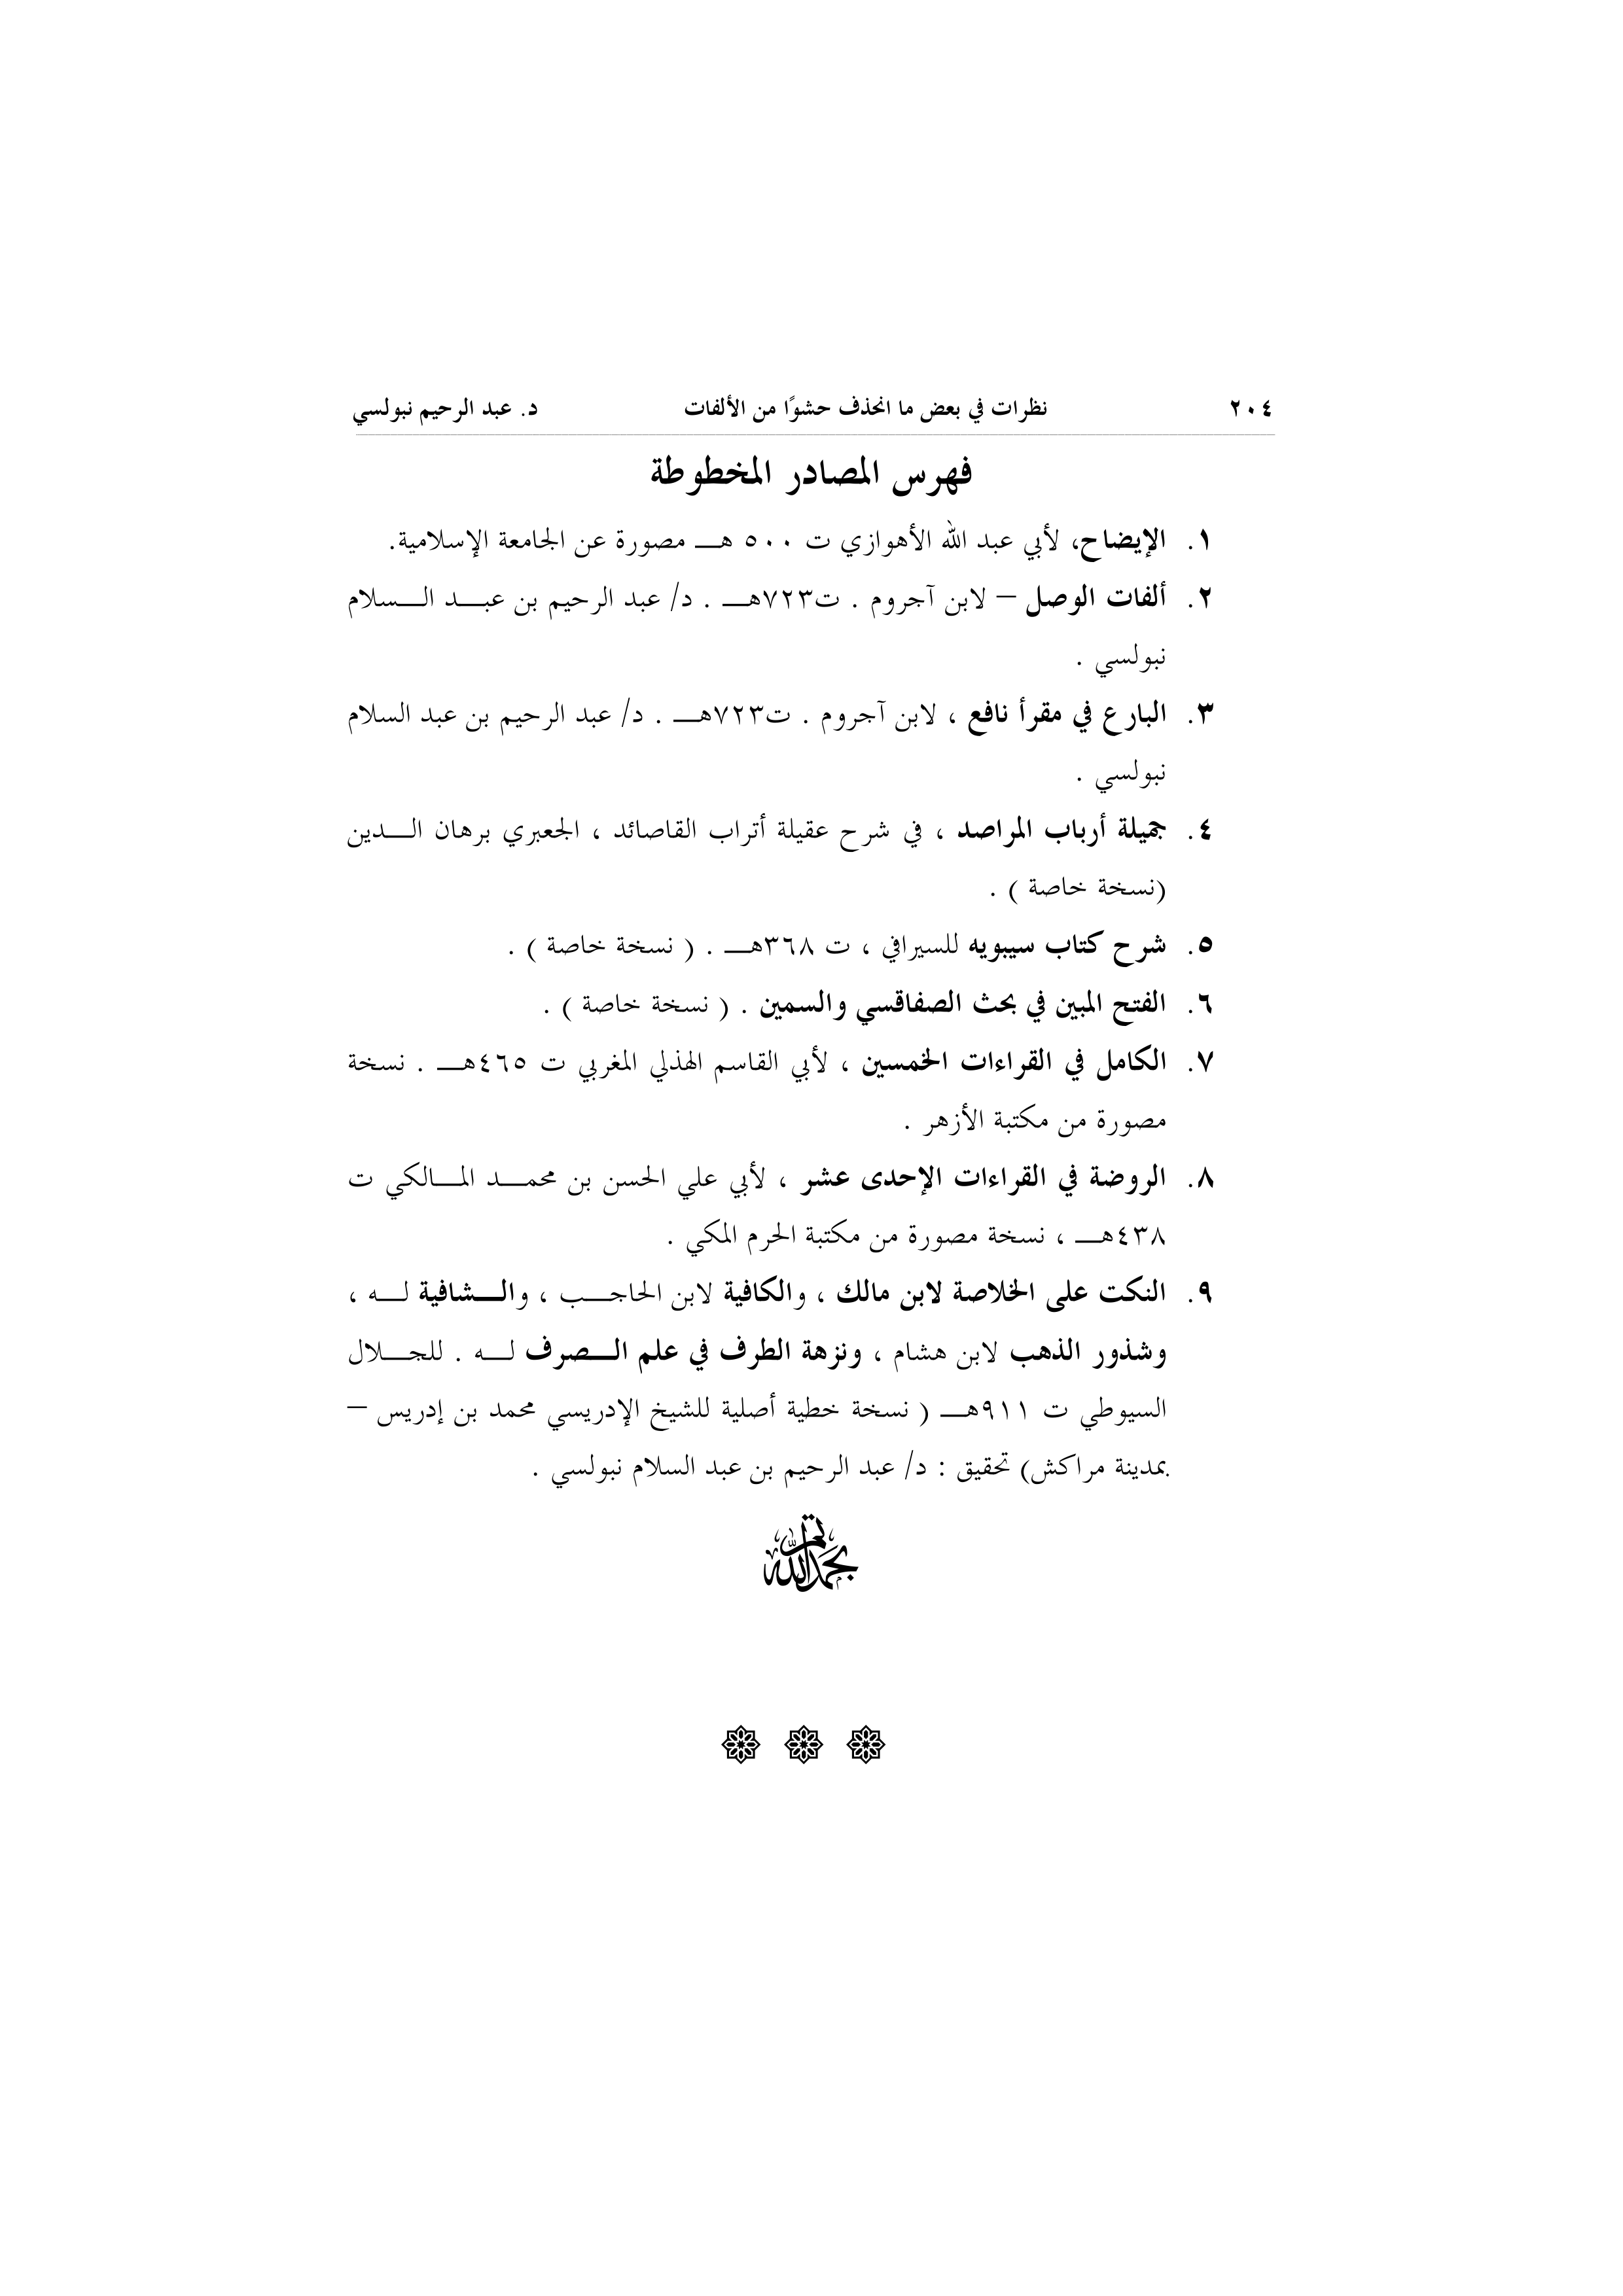 ٢٠٤ نظرات في بعض ما انحذف حشوًا من الألفات د. عبد الرحيم نبولسي
فهرس المصادر المخطوطة
١. الإيضاح، لأبي عبد الله الأهوازي ت ٥٠٠ هـ مصورة عن الجامعة الإسلامية.
٢. ألفات الوصل – لابن آجروم . ت٧٢٣هـ . د/ عبد الرحيم بن عبد السلام
نبولسي .
٣. البارع في مقرأ نافع ، لابن آجروم . ت٧٢٣هـ . د/ عبد الرحيم بن عبد السلام
نبولسي .
٤. جميلة أرباب المراصد ، في شرح عقيلة أتراب القاصائد ، الجعبري برهان الدين
(نسخة خاصة ) .
٥. شرح كتاب سيبويه للسيرافي ، ت ٣٦٨هـ . ( نسخة خاصة ) .
٦. الفتح المبين في بحث الصفاقسي والسمين . ( نسخة خاصة ) .
٧. الكامل في القراءات الخمسين ، لأبي القاسم الهذلي المغربي ت ٤٦٥هـ . نسخة
مصورة من مكتبة الأزهر .
٨. الروضة في القراءات الإحدى عشر ، لأبي علي الحسن بن محمد المالكي ت
٤٣٨هـ ، نسخة مصورة من مكتبة الحرم المكي .
٩. النكت على الخلاصة لابن مالك ، والكافية لابن الحاجب ، والشافية له ،
وشذور الذهب لابن هشام ، ونزهة الطرف في علم الصرف له . للجلال
السيوطي ت ٩١١هـ ( نسخة خطية أصلية للشيخ الإدريسي محمد بن إدريس –
بمدينة مراكش) تحقيق : د/ عبد الرحيم بن عبد السلام نبولسي .
تم بحمد الله